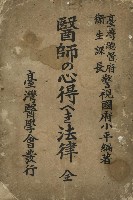 臺灣總督府警視國府小平編著
衞生課長
醫師の心得べき法律 全
臺灣醫學會發行